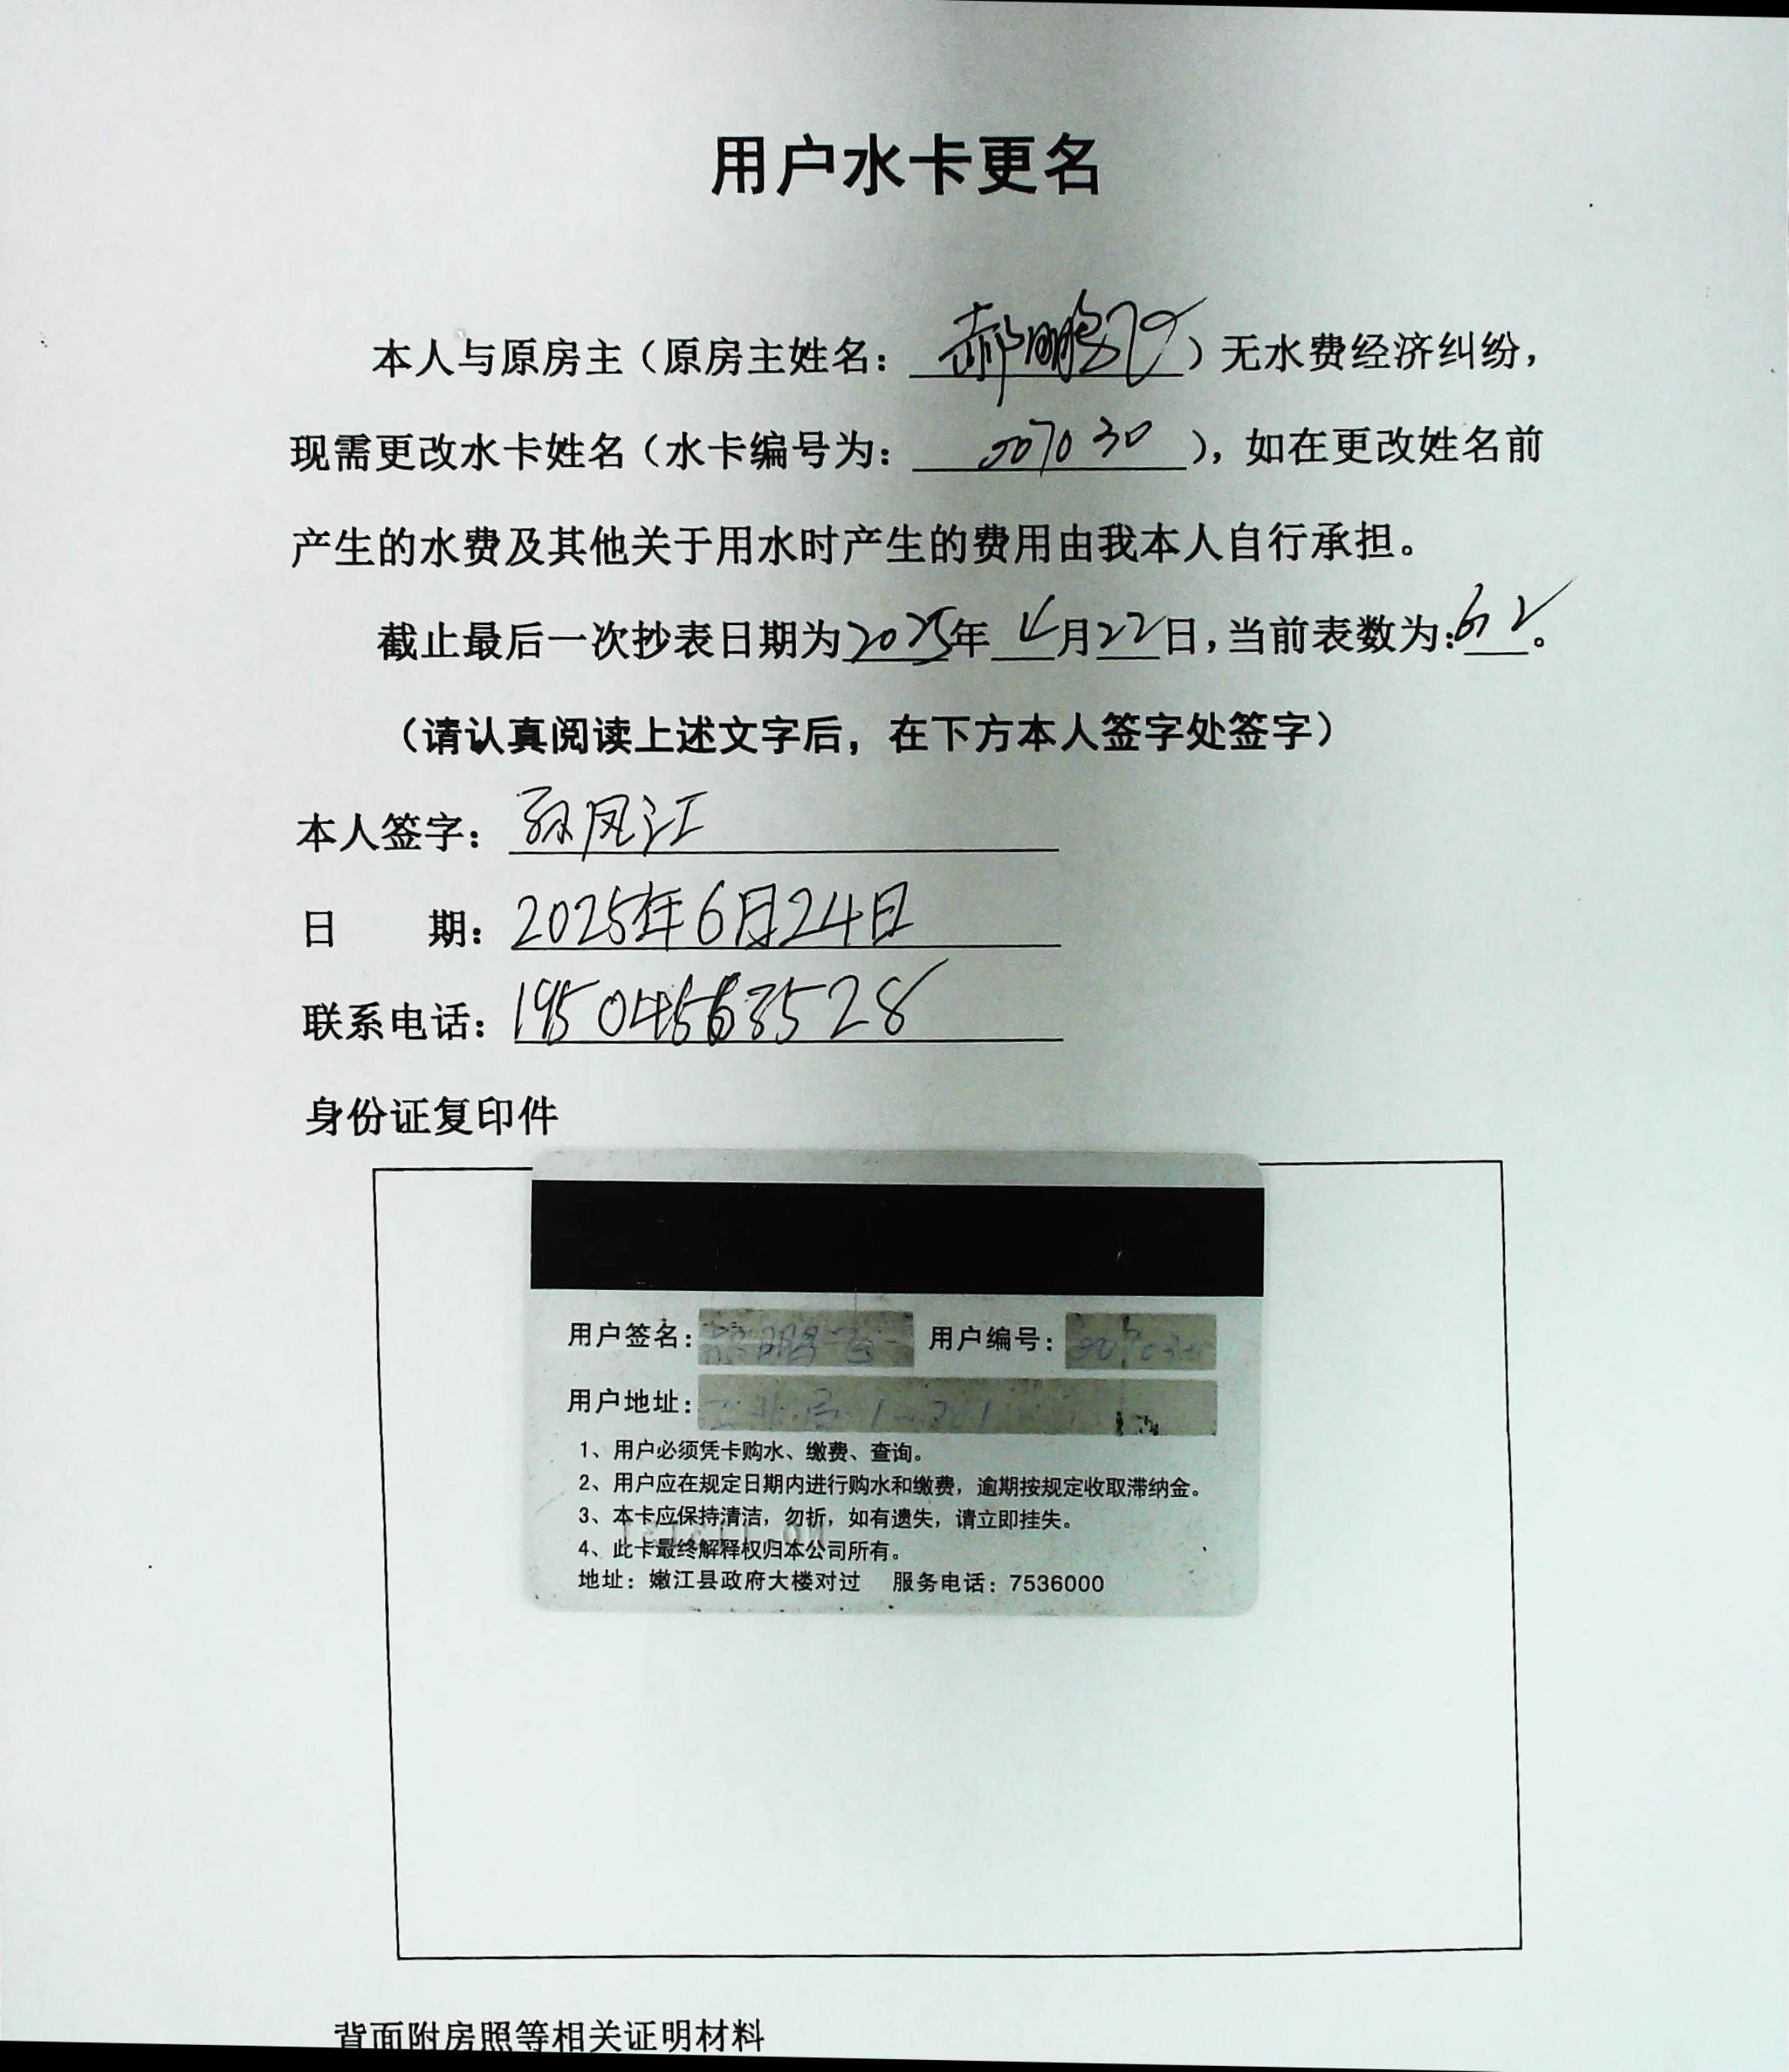 用户水卡更名
本人与原房主（原房主姓名：郝鹏飞）无水费经济纠纷，
现需更改水卡姓名（水卡编号为：007030），如在更改姓名前
产生的水费及其他关于用水时产生的费用由我本人自行承担。
截止最后一次抄表日期为2025年4月22日，当前表数为：62。
（请认真阅读上述文字后，在下方本人签字处签字）
本人签字：孙凤江
日 期：2025年6月24日
联系电话：19504563528
身份证复印件
用户签名：郝鹏飞 用户编号：007030
用户地址：
1、用户必须凭卡购水、缴费、查询。
2、用户应在规定日期内进行购水和缴费，逾期按规定收取滞纳金。
3、本卡应保持清洁，勿折，如有遗失，请立即挂失。
4、此卡最终解释权归本公司所有。
地址：嫩江县政府大楼对过 服务电话：7536000
背面附房照等相关证明材料